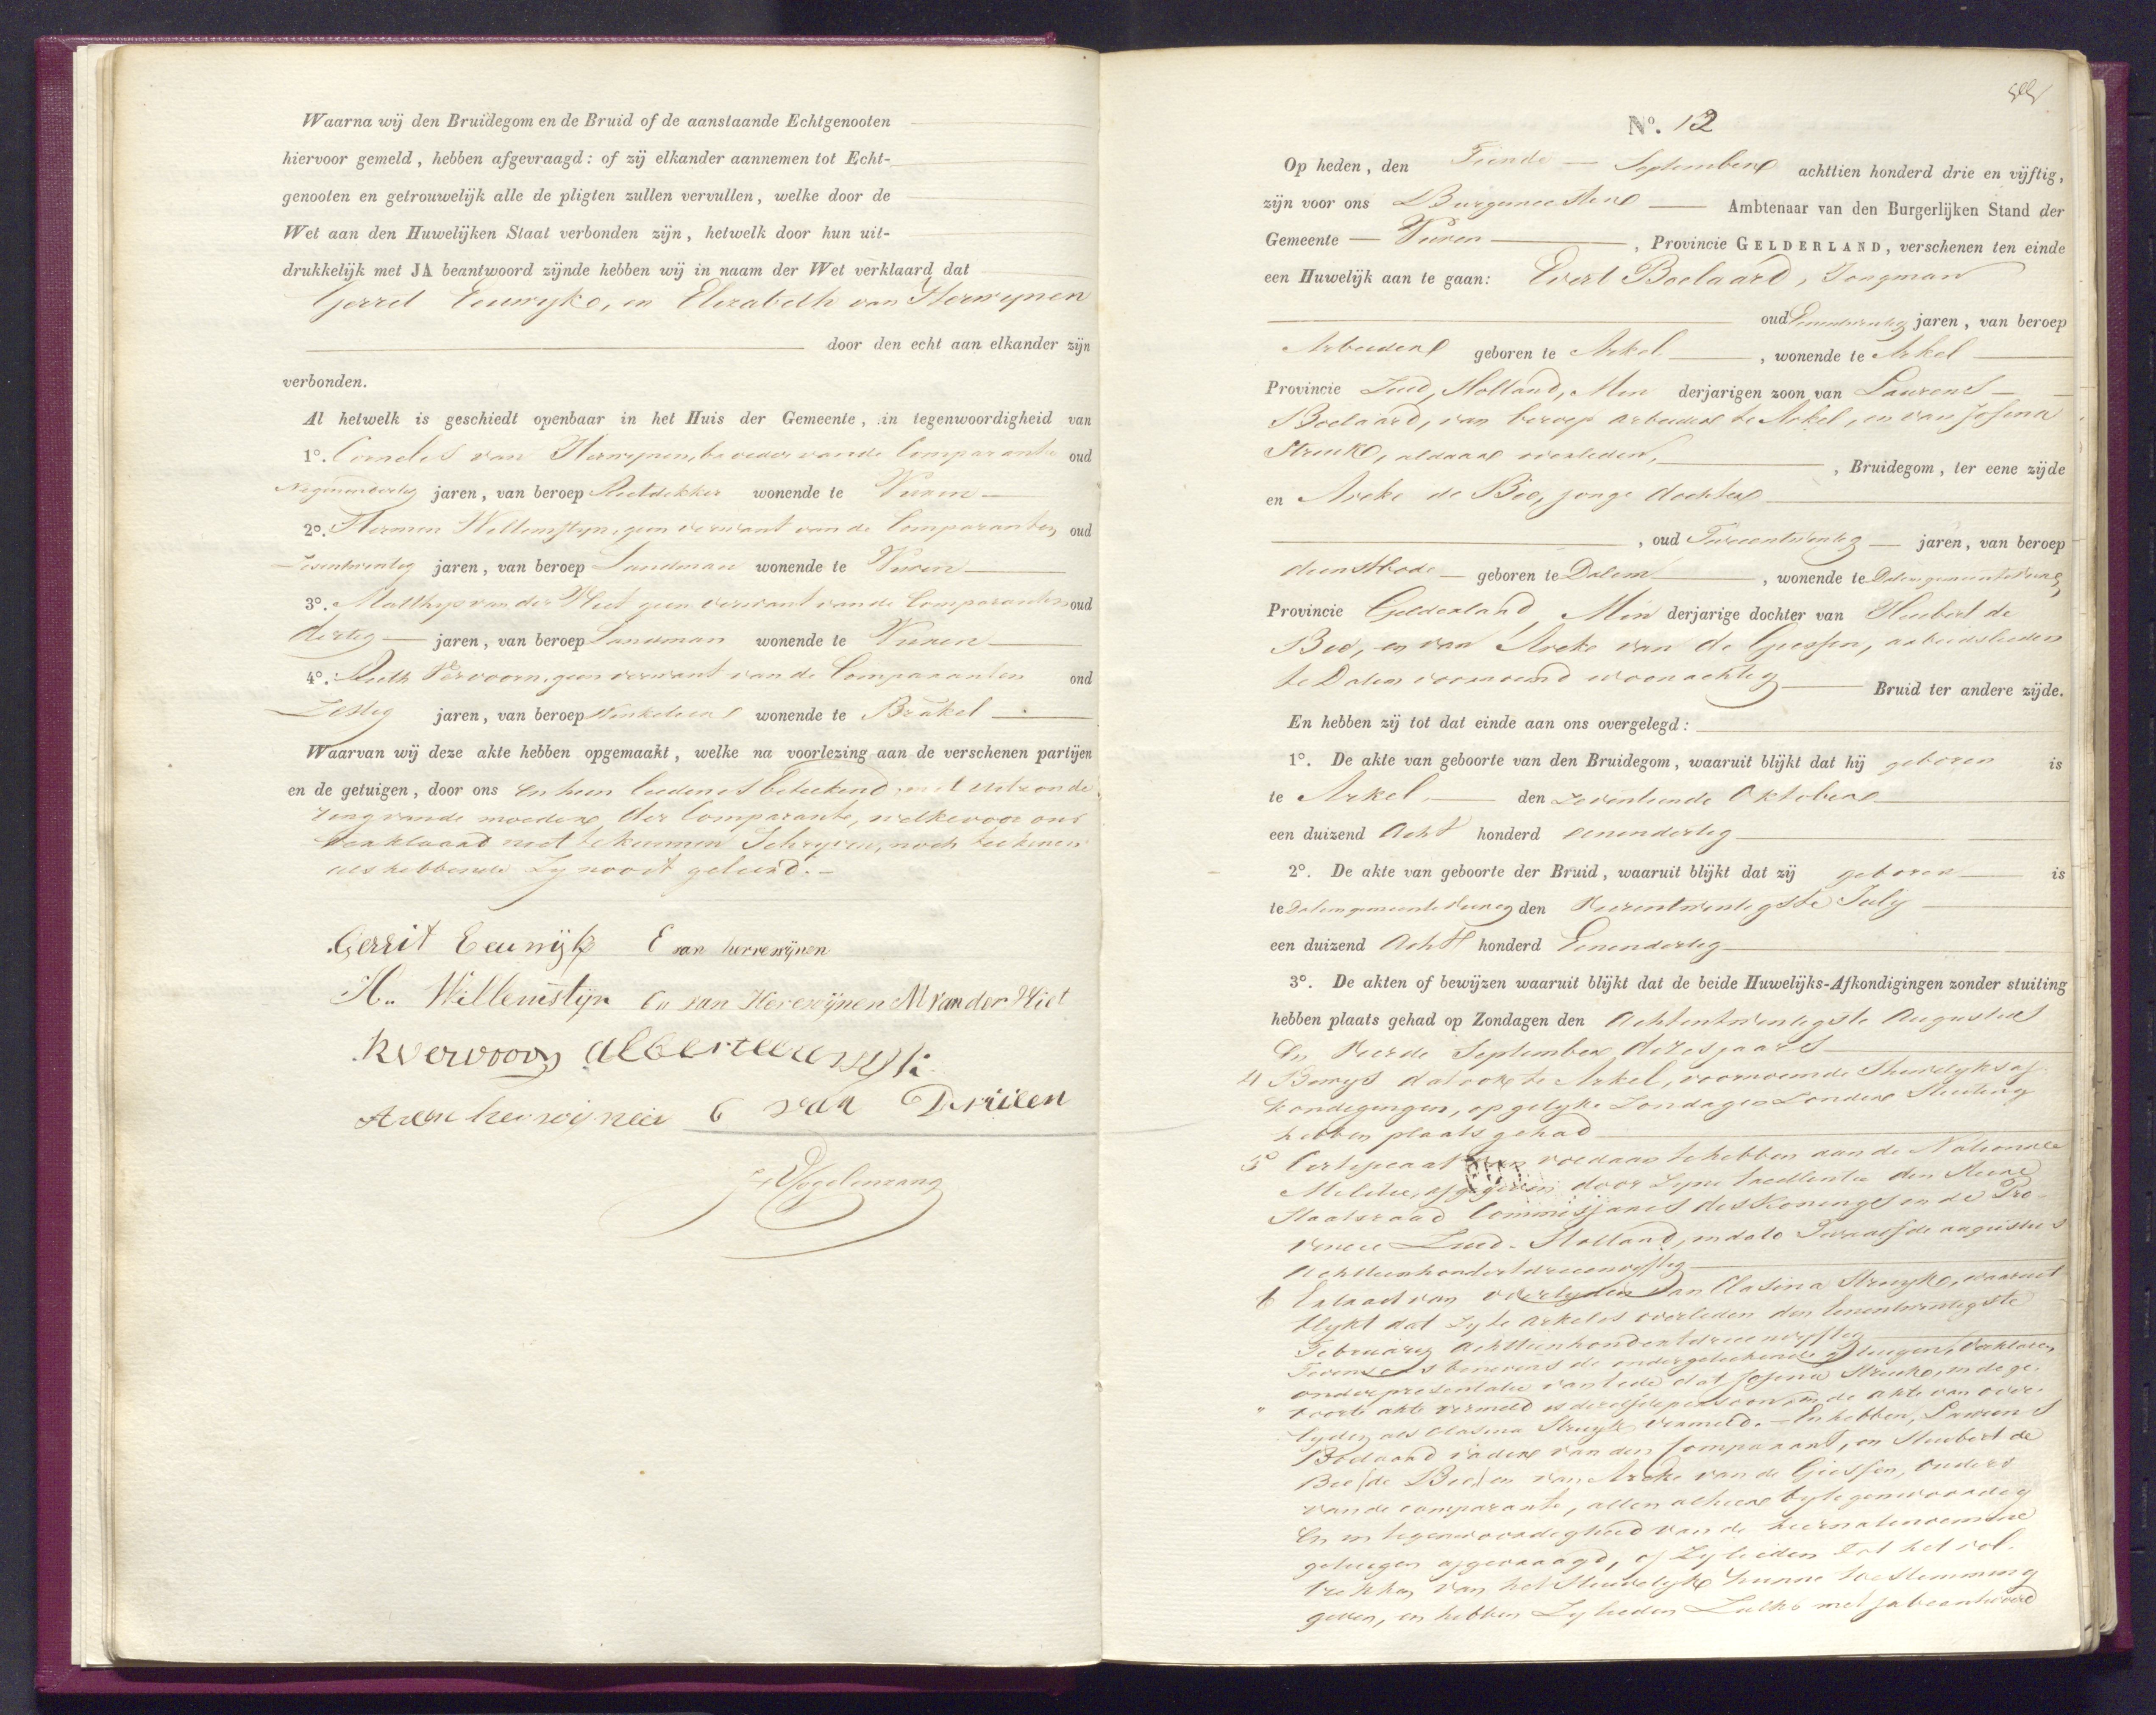 Waarna wij den Bruidegom en de Bruid of de aanstaande Echtgenooten
hiervoor gemeld, hebben afgevraagd: of zij elkander aannemen tot Echt-
genooten en getrouwelijk alle de pligten zullen vervullen, welke door de
Wet aan den Huwelijken Staat verbonden zijn, hetwelk door hun uit-
drukkelijk met JA beantwoord zijnde hebben wij in naam der Wet verklaard dat
Gerret Eeuwyk, en Elizabeth van Herwynen
door den echt aan elkander zijn
verbonden.
Al hetwelk is geschiedt openbaar in het Huis der Gemeente, in tegenwoordigheid van
1º. Cornelis van Herwynen, broeder van de Comparante oud
Negenendertig jaren, van beroep Rietdekker wonende te Vuren
2º. Hermen Willemstyn, geen verwant van de Comparanten oud
Zesentwintig jaren, van beroep Landman wonende te Vuren
3º. Matthys van der Vliet geen verwant van de Comparanten oud
dertig jaren, van beroep Landman wonende te Vuren
4º. Vervoorn, geen verwant van de Comparanten oud
Zestig jaren, van beroep Winkelier wonende te Brakel
Waarvan wij deze akte hebben opgemaakt, welke na voorlezing aan de verschenen partijen
en de getuigen, door ons en hun lieden is geteekend, met uitzonde
ring van de moeder der Comparante, welke voor ons
verklaard niet te kunnen Schryven, noch teekenen
als hebbende Zy nooit geleerd.
Gerrit Eeuwijk E van herrewijnen
H. Willemstijn Cs van Herewijnen M van der Vliet
R vervoorn albert eeuwijk
A van herwijnen C van Druiten
Vogelenzang
Nº. 12
Op heden, den Tiende September achttien honderd drie en vijftig,
zijn voor ons Burgemeester Ambtenaar van den Burgerlijken Stand der
Gemeente Vuren, Provincie GELDERLAND, verschenen ten einde
een Huwelijk aan te gaan: Evert Boelaard, Jongman
oud Eenentwintig jaren, van beroep
Arbeider geboren te Arkel, wonende te Arkel
Provincie Zuid Holland, Min derjarigen zoon van Laurens
Boelaard, van beroep arbeider te Arkel, en van Josina
Struik, aldaar overleden, Bruidegom, ter eene zijde
en Areke de Bie, jonge dochter
, oud Tweeentwintig jaren, van beroep
dienstbode geboren te Dalem, wonende te Dalem gemeente Vuren
Provincie Gelderland, Min derjarige dochter van Huibert de
Bie, en van Areke van de Giessen, arbeidslieden
te Dalem voornoemd woonachtig Bruid ter andere zijde.
En hebben zij tot dat einde aan ons overgelegd:
1º. De akte van geboorte van den Bruidegom, waaruit blijkt dat hij geboren is
te Arkel, den zeventiende Oktober
een duizend Acht honderd eenendertig
2º. De akte van geboorte der Bruid, waaruit blijkt dat zij geboren is
te Dalem gemeente Vuren den Vierentwintigste July
een duizend Acht honderd Eenendertig
3º. De akten of bewijzen waaruit blijkt dat de beide Huwelijks-Afkondigingen zonder stuiting
hebben plaats gehad op Zondagen den Achtentwintigste Augustus
En Vierde September dezes jaars
4 Bewys dat ook te Arkel, voornoemde Huwelyks af
kondigingen, op gelyke Zondagen Zonder Stuiting
hebben plaats gehad
5º Certificaat van voldaan te hebben aan de Nationale
Militie, afgegeven door Zyne Excellentie den Heere
Staatsraad Commissaris des Konings in de Pro
vincie Zuid-Holland, in dato Twaalfde augustus
Achttienhonderd drieenvyftig
6 Extract van overlyden van Clasina Struyk, waaruit
blykt dat Zy te Arkel is overleden den Eenentwintigste
February Achttienhonderd drieenvyftig
Tevens benevens de ondergeteekende getuigen, verklaren
onder presentatie van Eede dat Josina Struik, in de ge-
boorte akte vermeld is dezelfde persoon, in de akte van over-
lyden als Clasina Struyk vermeld. En hebben, Laurens
Boelaard vader van den Comparant, en Huibert de
Bie (de Bie) en van Areke van de Giessen, Ouders
van de comparante, allen alhier tegenwoordig
En in tegenwoordigheid van de hiernatenoemene
getuigen afgevraagd, of Zy lieden tot het vol-
trekken van het Huwelyk hunne toestemming
geven, en hebben Zy lieden Zulks met ja beantwoord